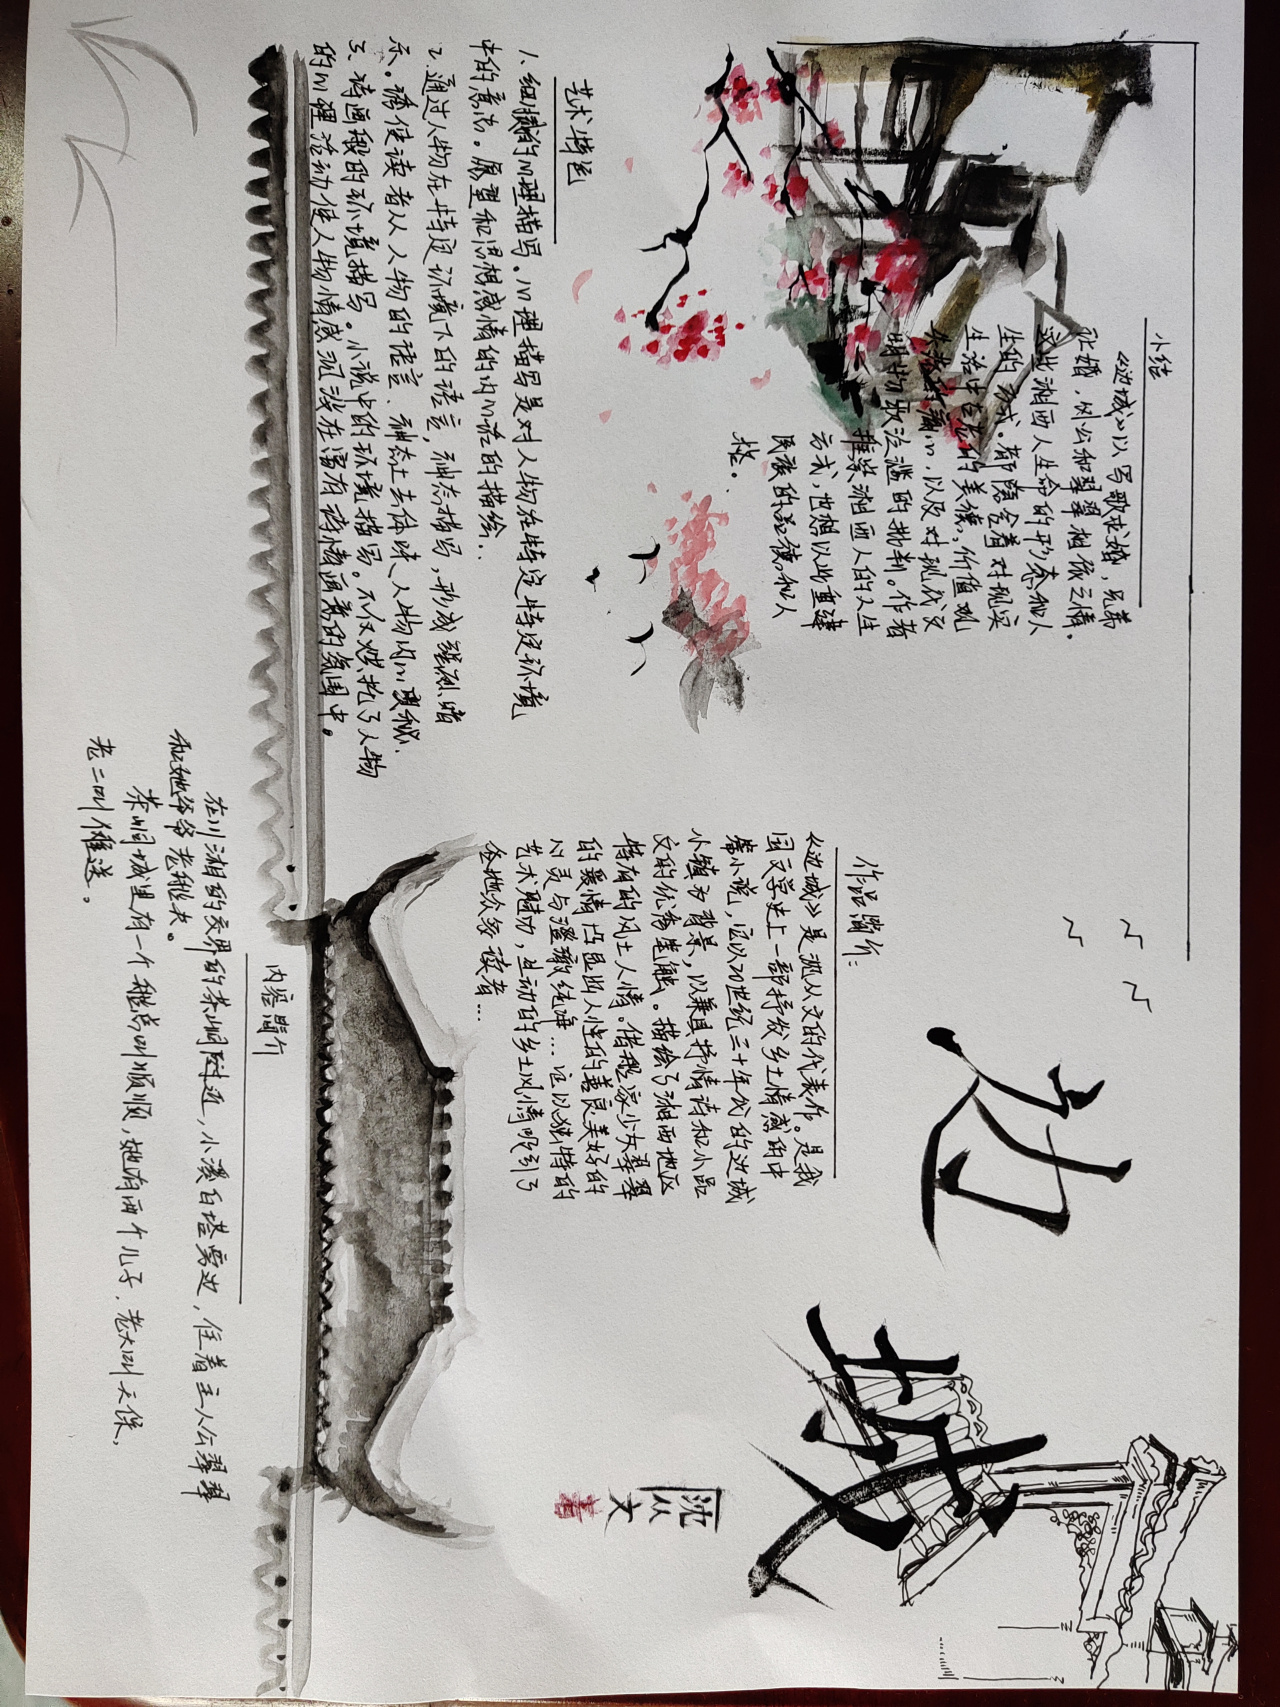 边城
沈从文
著
小结
《边城》以写歌求婚,兄弟
让婚,外公和翠翠相依之情。
这些湘西人生命的形态和人
生的方式。都隐含着对现实
生活中古老的美德,价值观
失落的痛心,以及对现代文
明物欲泛滥的批判。作者
推崇湘西人的人生
方式,也想以此重建
民族的品德和人
格。
作品简介:
《边城》是沈从文的代表作。是我
国文学史上一部抒发乡土情感的中
篇小说,它以20世纪三十年代的边城
小镇为背景,以兼具抒情诗和小品
文的优秀笔触。描绘了湘西地区
特有的风土人情。借船家少女翠翠
的爱情凸显出人性的善良美好的
心灵与澄澈纯净...它以独特的
艺术魅力,生动的乡土风情吸引了
各地众多读者...
艺术特色
1、细腻的心理描写。心理描写是对人物在特定特定环境
中的意志。愿望和思想感情的内心活的描绘..
2、通过人物在特定环境下的语言,神态描写,形成强烈暗
示。诱使读者从人物的语言、神态上去体味人物内心奥秘、
3、诗画般的环境描写。小说中的环境描写。不仅烘托了人物
的心理活动使人物情感沉浸在富有诗情画意的氛围中。
内容简介
在川湘的交界的茶峒附近,小溪白塔旁边,住着主人公翠翠
和她爷爷老船夫。
茶峒城里有一个船总叫顺顺,她有两个儿子,老大叫天保,
老二叫傩送。